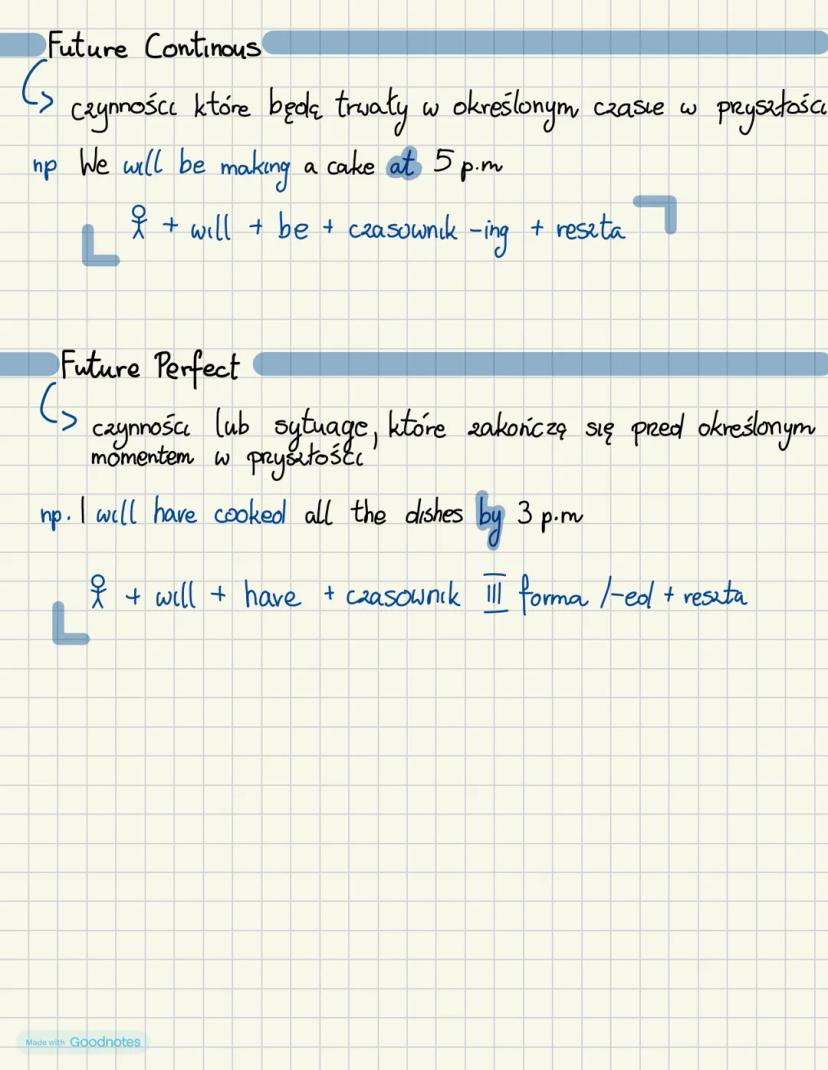 Future Continous
czynności które będą trwały w określonym czasie w przyszłości
np We will be making a cake at 5 p.m
+ will + be + czasownik -ing + reszta
Future Perfect
czynności lub sytuacje, które zakończą się przed określonym
momentem w przyszłości
np. I will have cooked all the dishes by 3 p.m
+ will + have + czasownik III forma /-ed + reszta
Made with Goodnotes